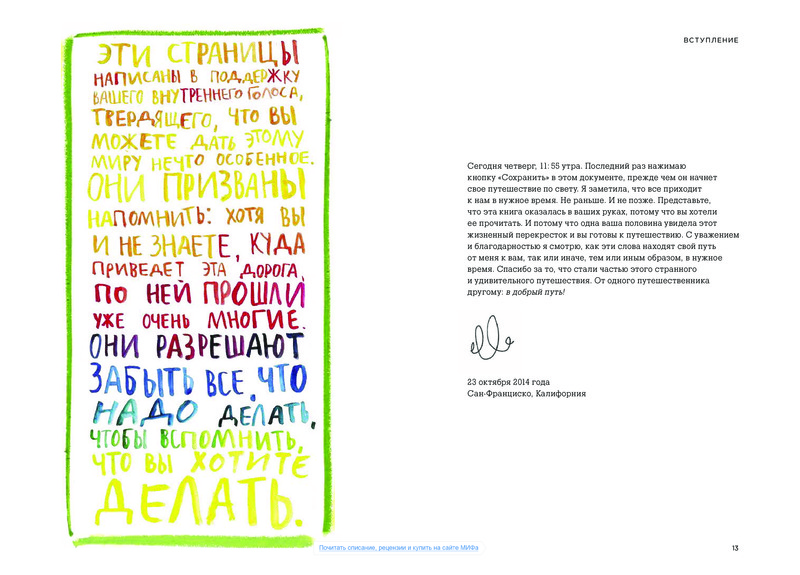 ЭТИ СТРАНИЦЫ
НАПИСАНЫ В ПОДДЕРЖКУ
ВАШЕГО ВНУТРЕННЕГО ГОЛОСА,
ТВЕРДЯЩЕГО, ЧТО ВЫ
МОЖЕТЕ ДАТЬ ЭТОМУ
МИРУ НЕЧТО ОСОБЕННОЕ.
ОНИ ПРИЗВАНЫ
НАПОМНИТЬ: ХОТЯ ВЫ
И НЕ ЗНАЕТЕ, КУДА
ПРИВЕДЕТ ЭТА ДОРОГА,
ПО НЕЙ ПРОШЛИ
УЖЕ ОЧЕНЬ МНОГИЕ.
ОНИ РАЗРЕШАЮТ
ЗАБЫТЬ ВСЕ, ЧТО
НАДО ДЕЛАТЬ,
ЧТОБЫ ВСПОМНИТЬ,
ЧТО ВЫ ХОТИТЕ
ДЕЛАТЬ.
ВСТУПЛЕНИЕ
Сегодня четверг, 11: 55 утра. Последний раз нажимаю
кнопку «Сохранить» в этом документе, прежде чем он начнет
свое путешествие по свету. Я заметила, что все приходит
к нам в нужное время. Не раньше. И не позже. Представьте,
что эта книга оказалась в ваших руках, потому что вы хотели
ее прочитать. И потому что одна ваша половина увидела этот
жизненный перекресток и вы готовы к путешествию. С уважением
и благодарностью я смотрю, как эти слова находят свой путь
от меня к вам, так или иначе, тем или иным образом, в нужное
время. Спасибо за то, что стали частью этого странного
и удивительного путешествия. От одного путешественника
другому: в добрый путь!
elle
23 октября 2014 года
Сан-Франциско, Калифорния
Почитать списание, рецензии и купить на сайте МИФа
13